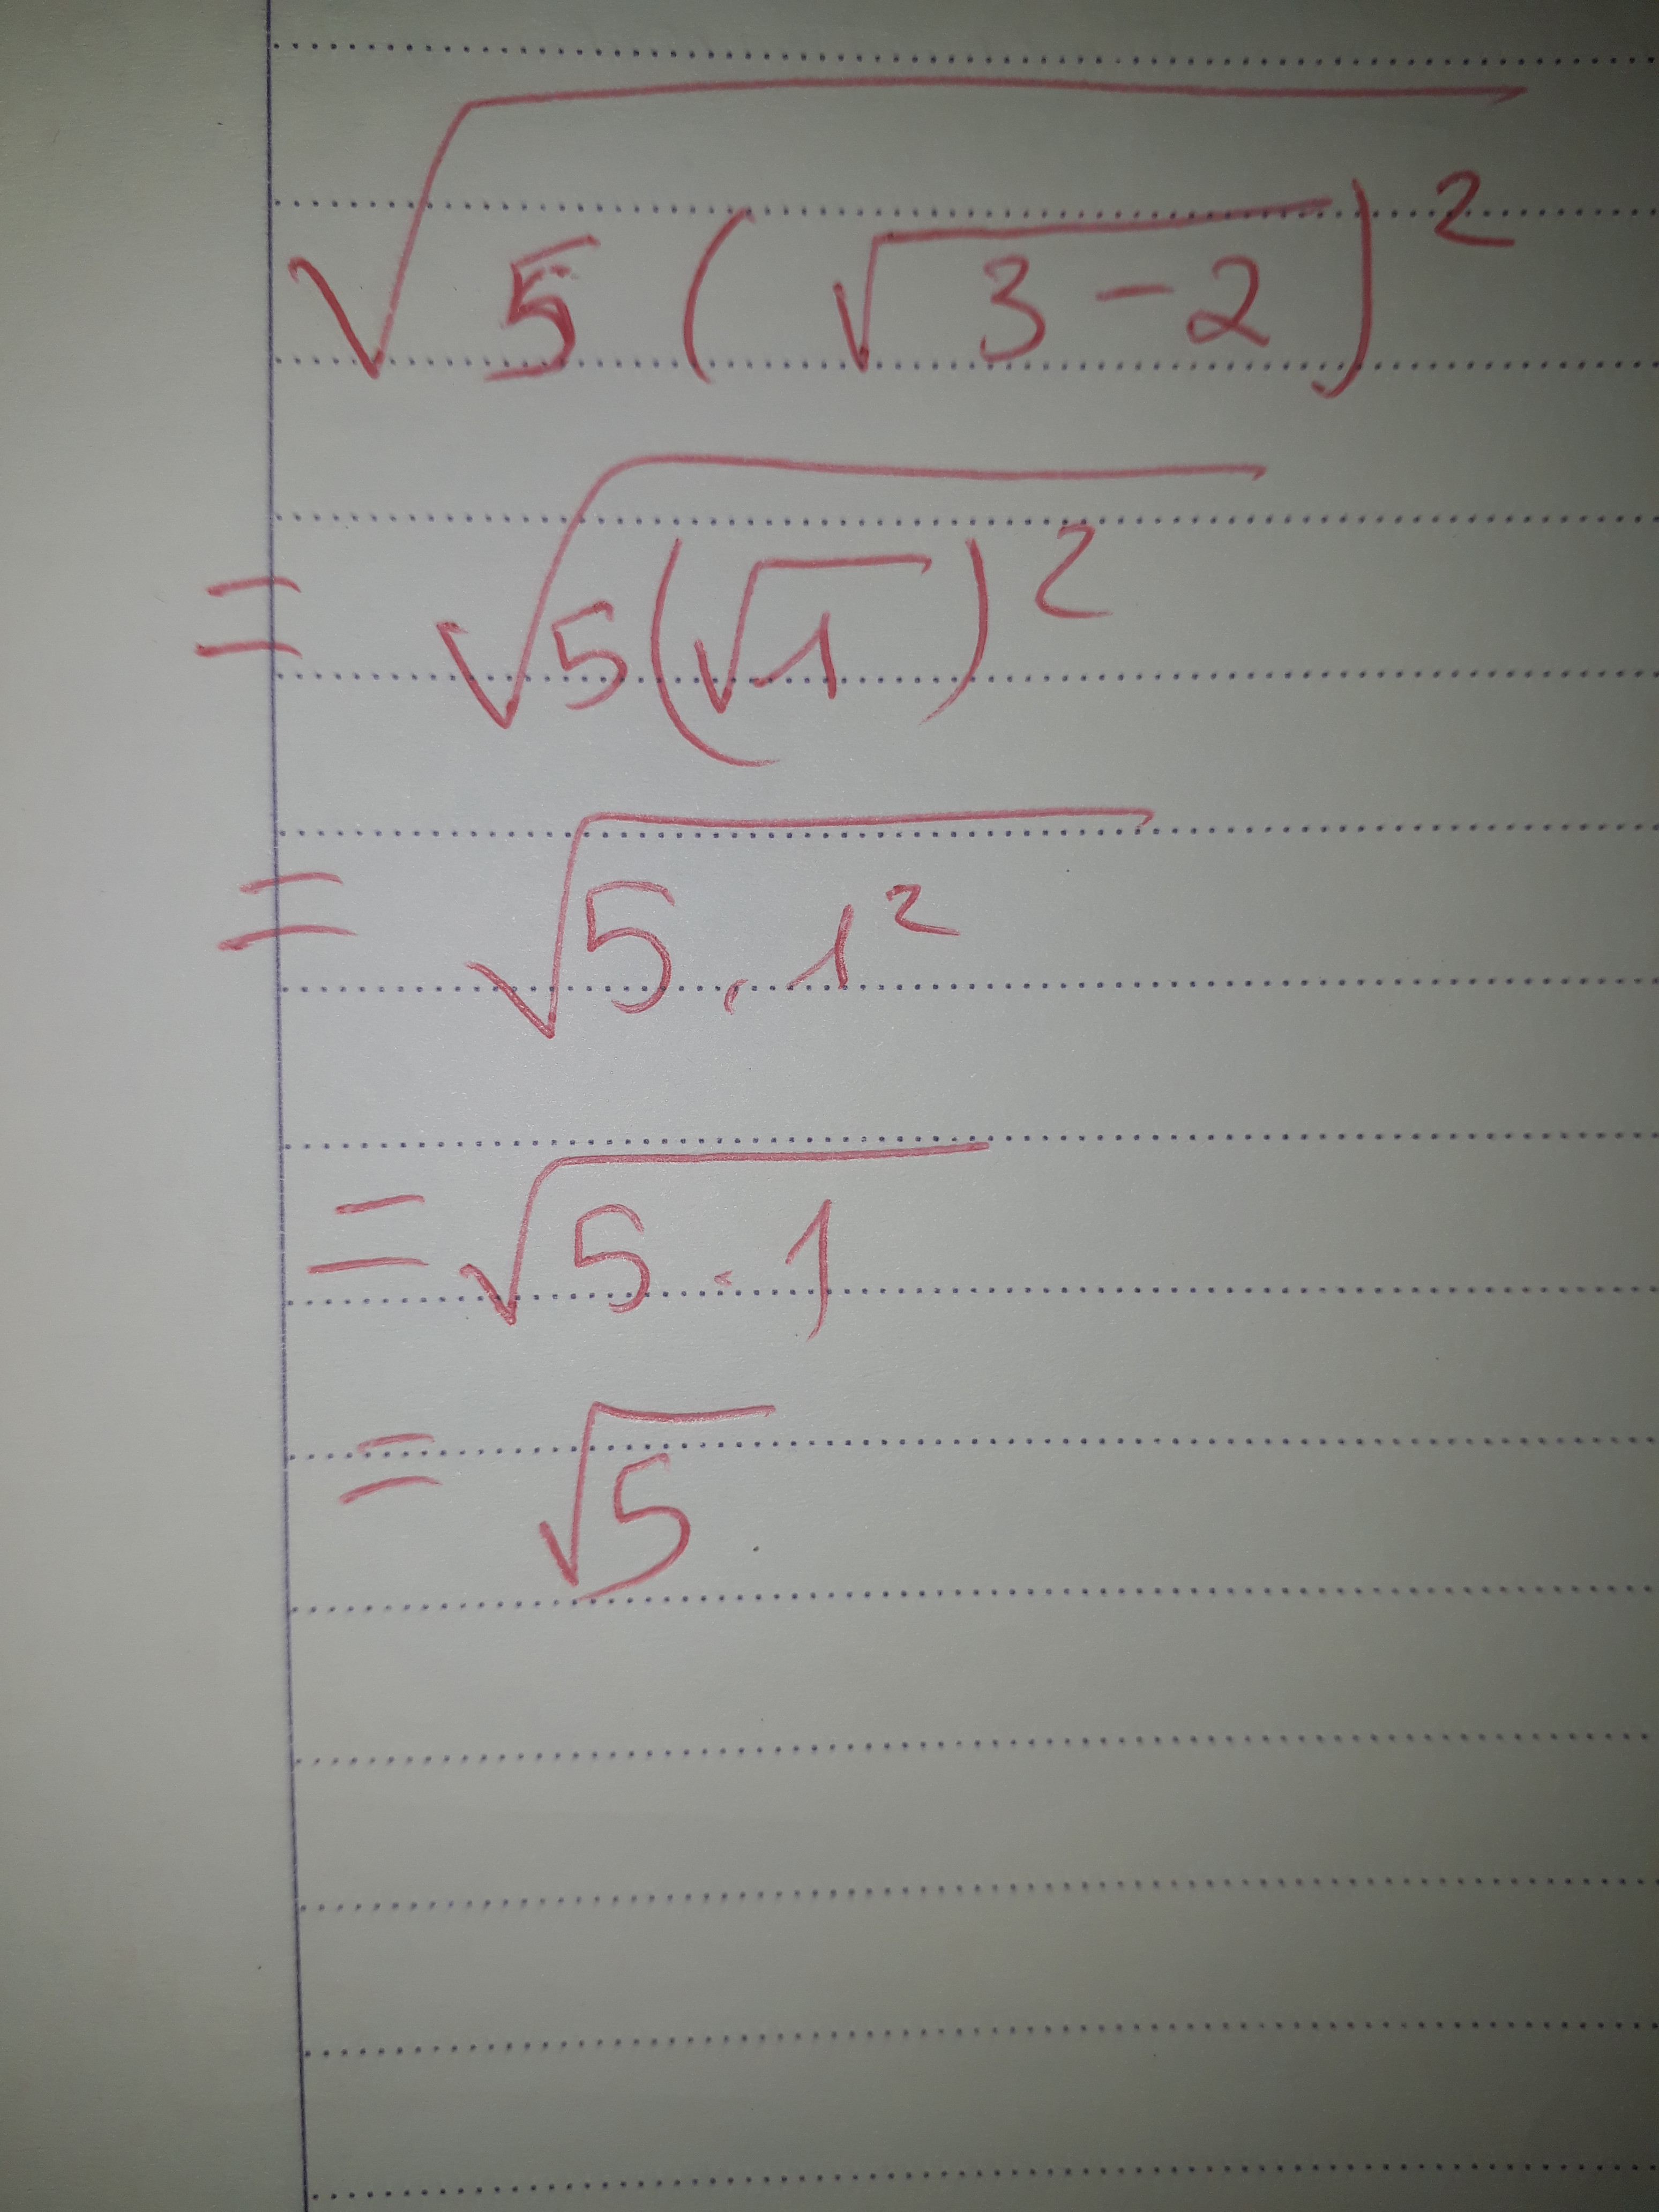 √(5(√(3-2))²)
= √(5(√1)²)
= √(5.1²)
= √(5.1)
= √5